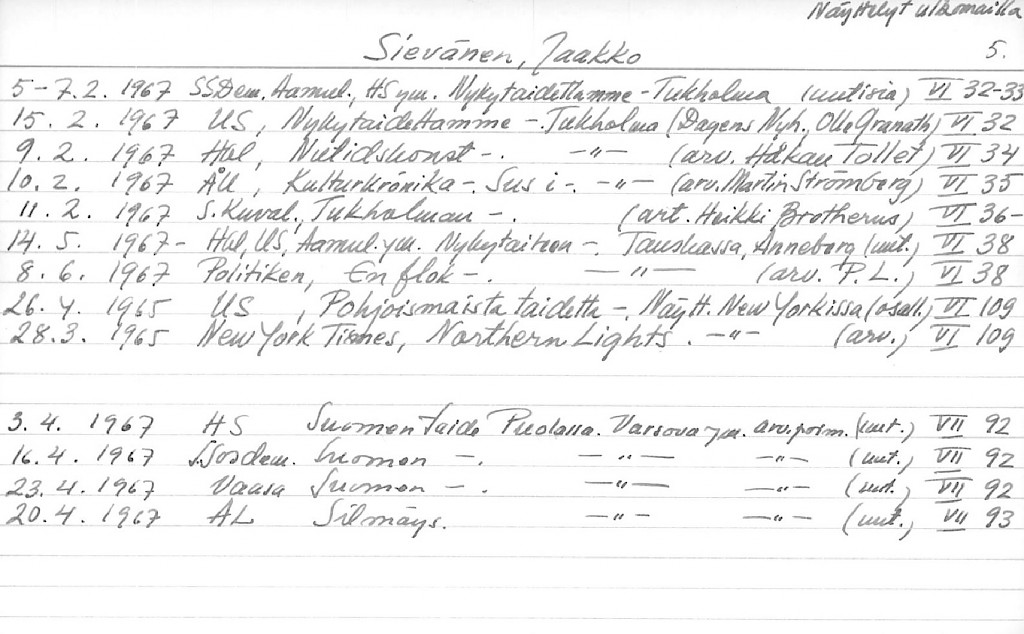 Näyttelyt ulkomailla
Sievänen, Jaakko 5.
5-7.2. 1967 SSDem. Aamul., HS ym. Nykytaidettamme - Tukholma (uutisia) VI 32-33
15. 2. 1967 US, Nykytaidettamme -. Tukholma (Dagens Nyh., Olle Granath) VI 32
9. 2. 1967 Hbl, Nutidskonst -. -"- (arv. Håkan Tollet) VI 34
10. 2. 1967 ÅU, Kulturkrönika -. Sus i -. -"- (arv. Martin Strömberg) VI 35
11. 2. 1967 S. Kuval., Tukholman -. (art. Heikki Brotherus) VI 36-
14. 5. 1967- Hbl, US, Aamul. ym. Nykytaiteen -. Tanskassa, Anneborg (uut.) VI 38
8. 6. 1967 Politiken, En flok -. -"- (arv. P.L.) VI 38
26. 4. 1965 US, Pohjoismaista taidetta -. Näytt. New Yorkissa (osall.) VI 109
28.3. 1965 New York Times, Northern Lights. -"- (arv.) VI 109
3. 4. 1967 HS Suomen taide Puolassa. Varsova ym. arv. poim. (uut.) VII 92
16.4. 1967 S.Sosdem. Suomen -. -"- -"- (uut.) VII 92
23. 4. 1967 Vaasa Suomen -. -"- -"- (uut.) VII 92
20. 4. 1967 AL Silmäys. -"- -"- (uut.) VII 93